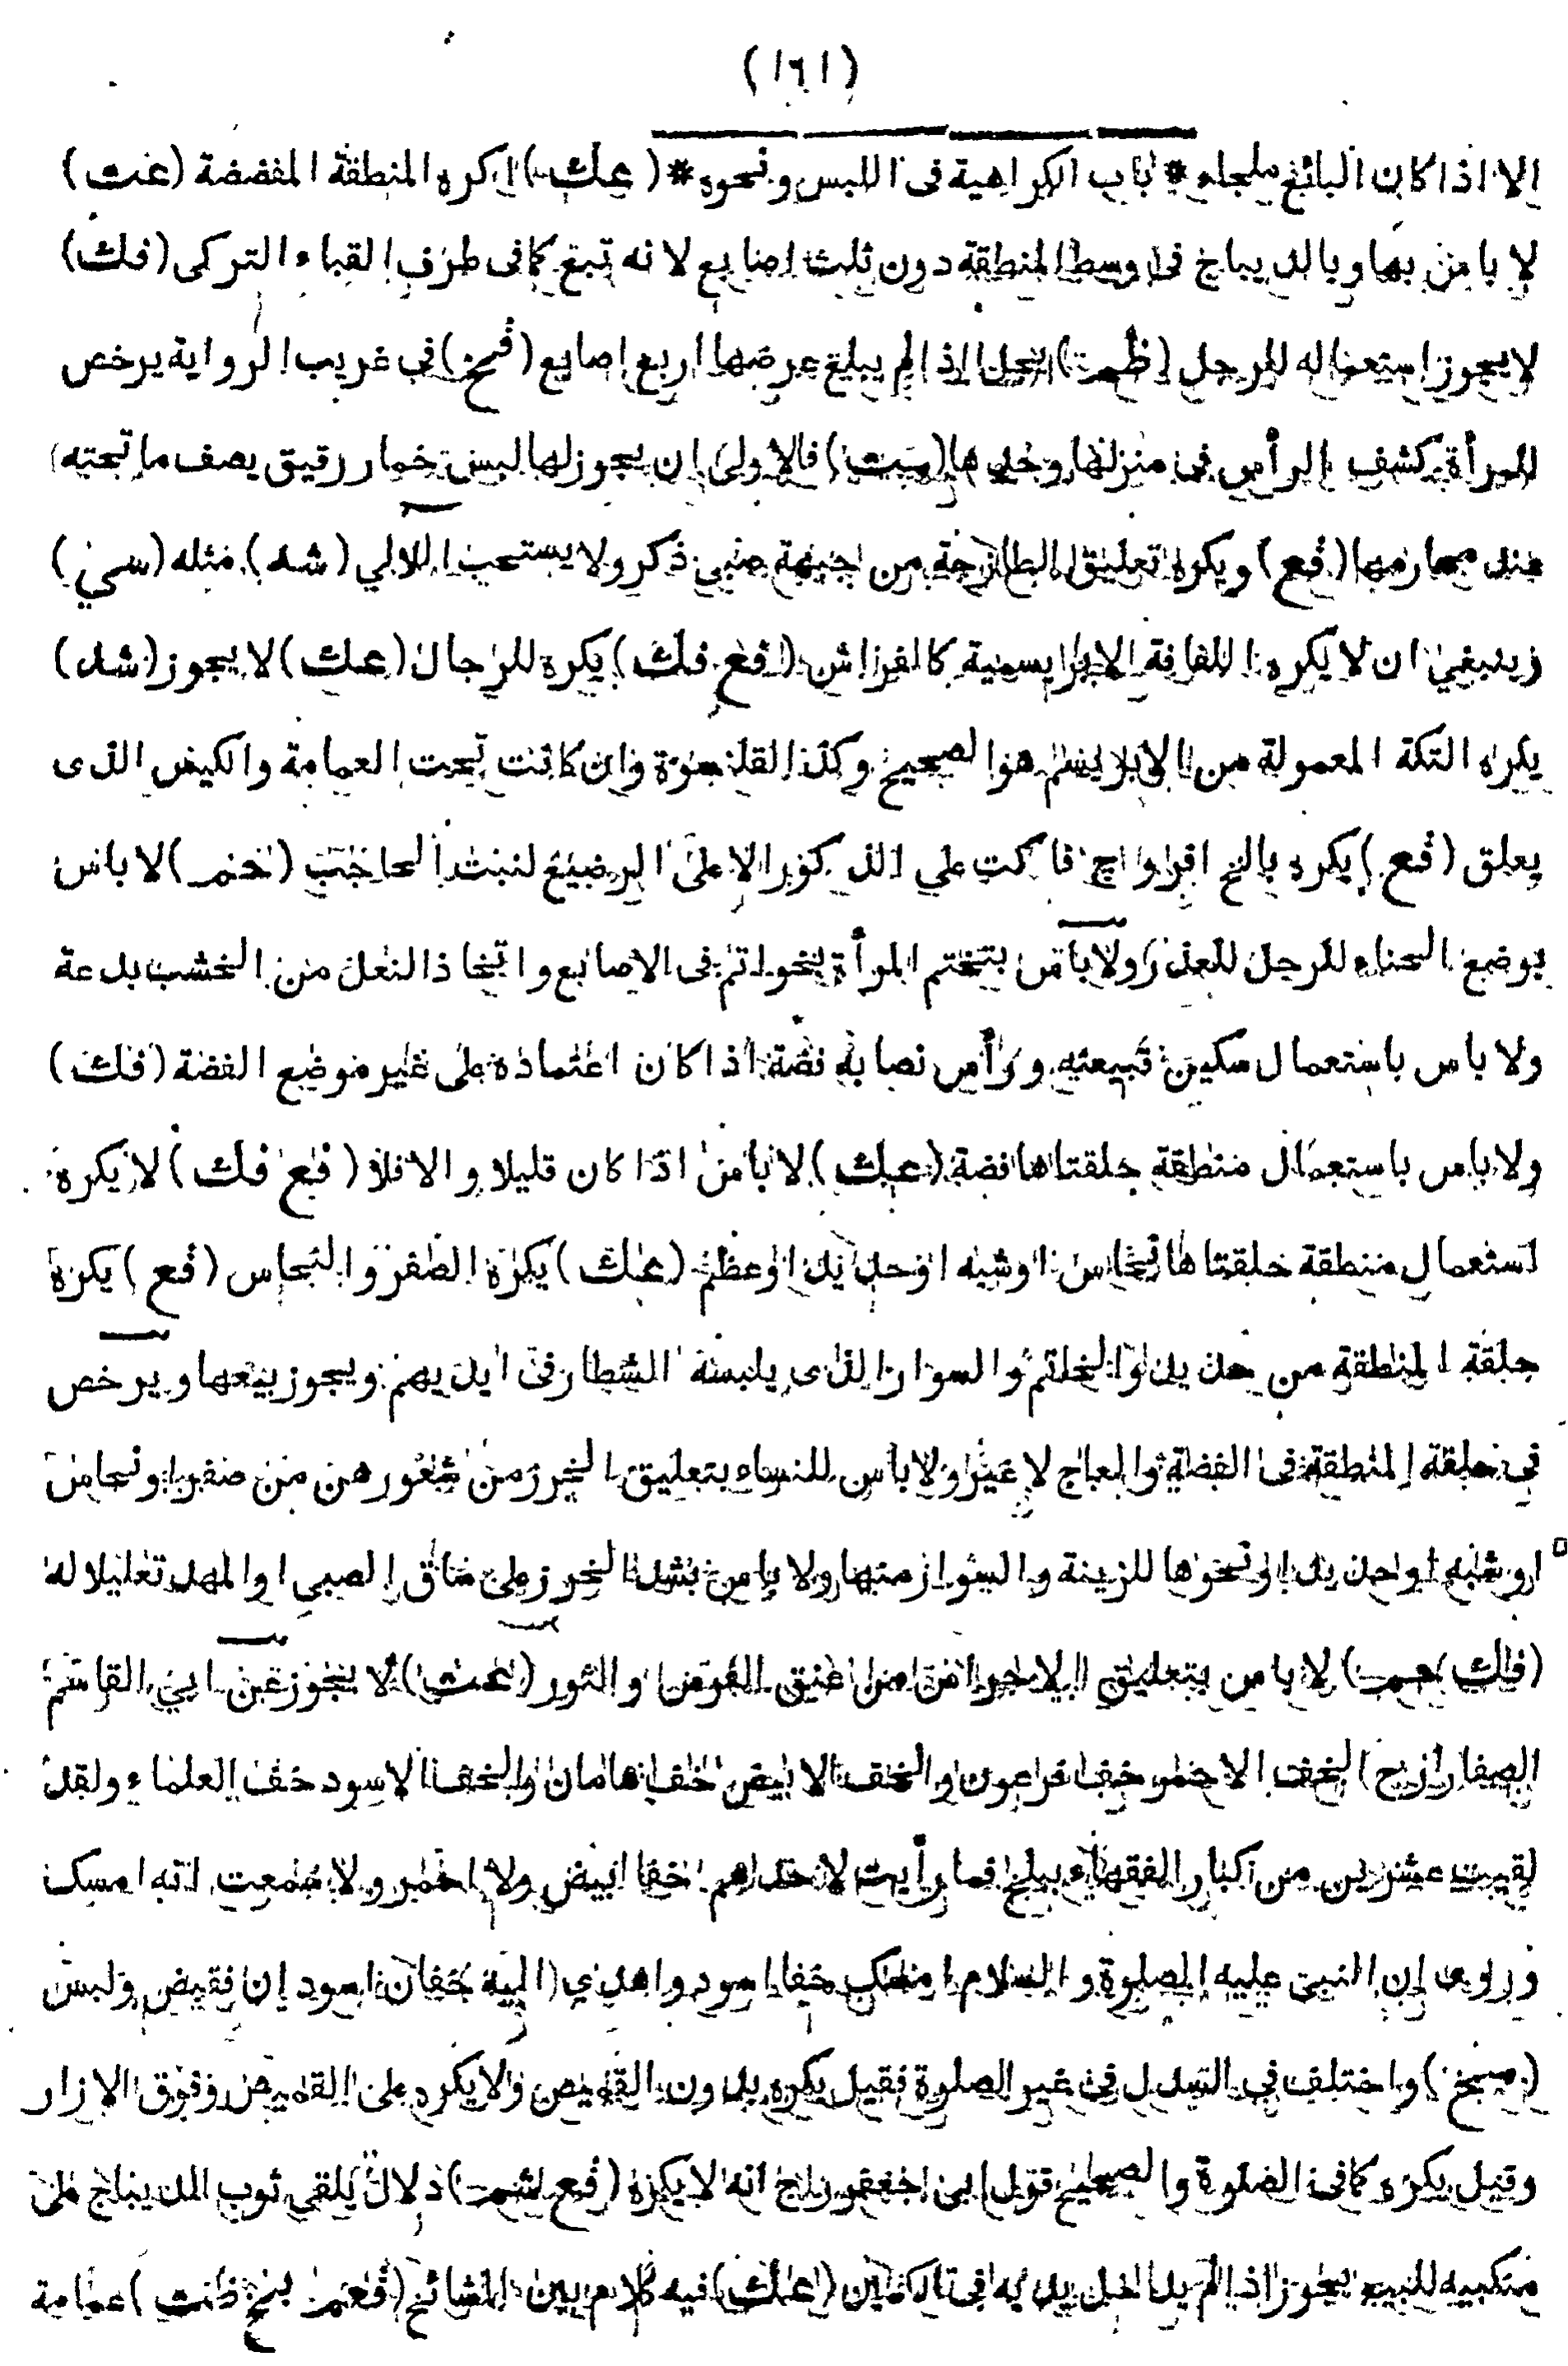 (١٦١)
الا اذا كان البائع ملجاء * باب الكراهية فى اللبس ونحوه * (عك) اكره المنطقة المفضضة (عت)
لا باس بها وبالديباج فى وسط المنطقة دون ثلث اصابع لانه تبع كما فى طرف القباء التركى (فك)
لا يجوز استعماله للرجل (ظمت) يحل اذا لم يبلغ عرضها اربع اصابع (فمخ) فى غريب الرواية يرخص
للمرأة كشف الرأس فى منزلها وحدها فالاولى ان يجوز لها لبس خمار رقيق يصف ما تحته
عند محارمها (قع) ويكره تعليق من ذكر ولا يستحب اللالي (شد) مثله (سي)
وينبغي ان لا يكره اللفافة الابريسمية كالفراش (قع فك) يكره للرجال (عك) لا يجوز (شد)
يكره التكة المعمولة من الابريسم هو الصحيح وكذا القلنسوة وان كانت تحت العمامة والكيس الذى
يعلق (قع) يكره على الذكور الا على الرضيع لنبت الحاجب (خنم) لا باس
بوضع الحناء للرجل للعذر ولا باس بتختم المرأة بخواتم فى الاصابع واتخاذ النعل من الخشب بدعة
ولا باس باستعمال سكين قبيعته ورأس نصابه فضة اذا كان اعتماده على غير موضع الفضة (فك)
ولا باس باستعمال منطقة حلقتاها فضة (عك) لا باس اذا كان قليلا والا فلا (قع فك) لا يكره
استعمال منطقة حلقتاها نحاس اوشبه اوحديد اوعظم (عك) يكره الصفر والنحاس (قع) يكره
حلقة المنطقة من حديد والخاتم والسوار الذى يلبسه الشطار فى ايديهم ويجوز بيعها ويرخص
فى حلقة المنطقة فى الفضة والعاج لا غير ولا باس للنساء بتعليق الخرز من شعورهن من صفر اونحاس
اوشبه اوحديد اونحوها للزينة والسوار منها ولا باس بشد الخرز على ساق الصبي اوالمهد تعليلا له
(فك) لا باس بتعليق الاجراس من عنق الفرس والثور (عت) لا يجوز عن ابي القاسم
الصفار الخف الاحمر خف فرعون والخف الابيض خف هامان والخف الاسود خف العلماء ولقد
لقيت عشرين من كبار الفقهاء ببلخ فما رأيت لاحدهم خفا ابيض ولا احمر ولا سمعت انه امسك
وروى ان النبي عليه الصلوة والسلام امسك خفا اسود واهدي اليه خفان اسودان فقبض ولبس
واختلف فى السدل فى غير الصلوة فقيل يكره بدون القميص ولا يكره على القميص وفوق الازار
وقيل يكره كما فى الصلوة والصحيح قول ابي جعفر انه لا يكره دلال يلقي ثوب الديباج على
منكبيه للبيع يجوز اذا لم يدخل يديه فى الكمين (عك) فيه كلام بين المشائخ عمامة